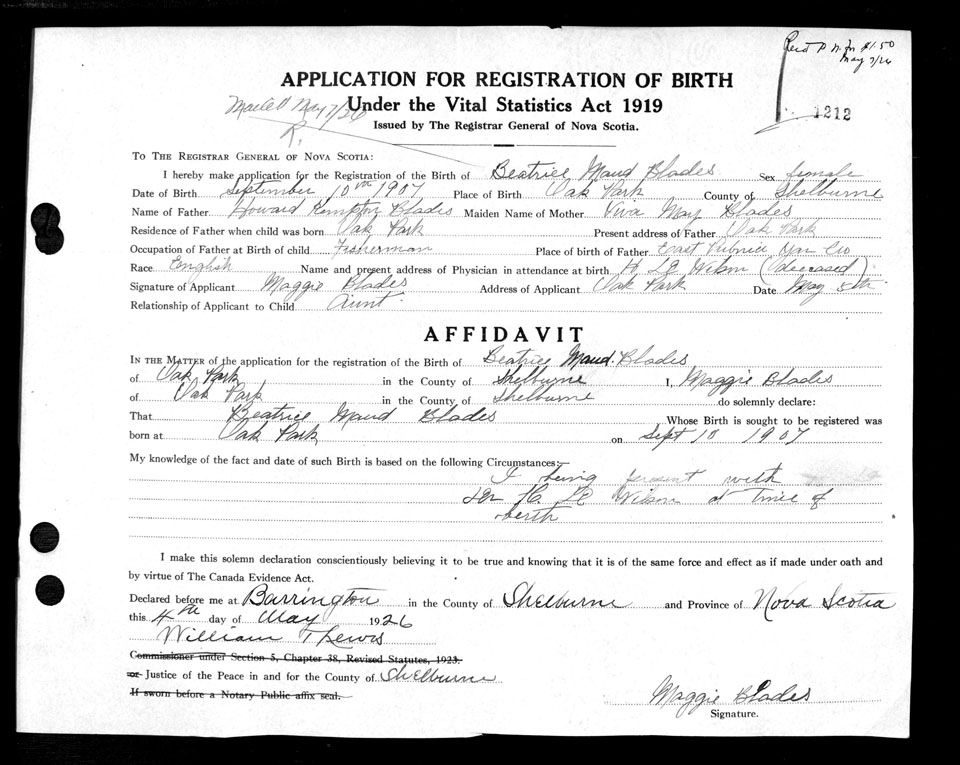 Rec'd P.N. for $1.50
May 7/26
APPLICATION FOR REGISTRATION OF BIRTH
Under the Vital Statistics Act 1919
May 7/26
R.
1212
Issued by The Registrar General of Nova Scotia.
TO THE REGISTRAR GENERAL OF NOVA SCOTIA:
I hereby make application for the Registration of the Birth of Beatrice Maud Blades Sex female
Date of Birth September 10th 1907 Place of Birth Oak Park County of Shelburne
Name of Father Howard Kempton Blades Maiden Name of Mother Viva May Blades
Residence of Father when child was born Oak Park Present address of Father Oak Park
Occupation of Father at Birth of child Fisherman Place of birth of Father East Pubnico Yar Co
Race English Name and present address of Physician in attendance at birth H. Le Wilson (deceased)
Signature of Applicant Maggie Blades Address of Applicant Oak Park Date May 5th
Relationship of Applicant to Child Aunt
AFFIDAVIT
IN THE MATTER of the application for the registration of the Birth of Beatrice Maud Blades
of Oak Park in the County of Shelburne I, Maggie Blades
of Oak Park in the County of Shelburne do solemnly declare:
That Beatrice Maud Blades Whose Birth is sought to be registered was
born at Oak Park on Sept 10 1907
My knowledge of the fact and date of such Birth is based on the following Circumstances:
I being present with
Dr H. Le Wilson at time of
berth
I make this solemn declaration conscientiously believing it to be true and knowing that it is of the same force and effect as if made under oath and
by virtue of The Canada Evidence Act.
Declared before me at Barrington in the County of Shelburne and Province of Nova Scotia
this 4th day of May 1926
William T Lewis
Commissioner under Section 5, Chapter 38, Revised Statutes, 1923.
or Justice of the Peace in and for the County of Shelburne
If sworn before a Notary Public affix seal.
Maggie Blades
Signature.